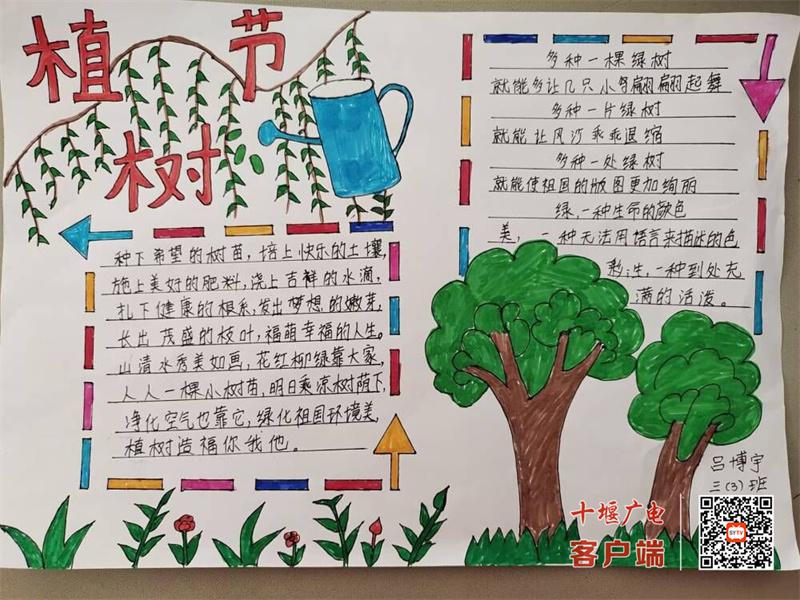 植树节
种下希望的树苗，培上快乐的土壤，
施上美好的肥料，浇上吉祥的水滴，
扎下健康的根系，发出梦想的嫩芽，
长出茂盛的枝叶，福荫幸福的人生。
山清水秀美如画，花红柳绿靠大家，
人人一棵小树苗，明日乘凉树荫下，
净化空气也靠它，绿化祖国环境美，
植树造福你我他。
多种一棵绿树
就能多让几只小鸟翩翩起舞
多种一片绿树
就能让风沙乖乖退缩
多种一处绿树
就能使祖国的版图更加绚丽
绿，一种生命的颜色
美，一种无法用语言来描述的色
彩；生，一种到处充
满的活泼。
吕博宇
三(3)班
十堰广电
客户端
SYTV